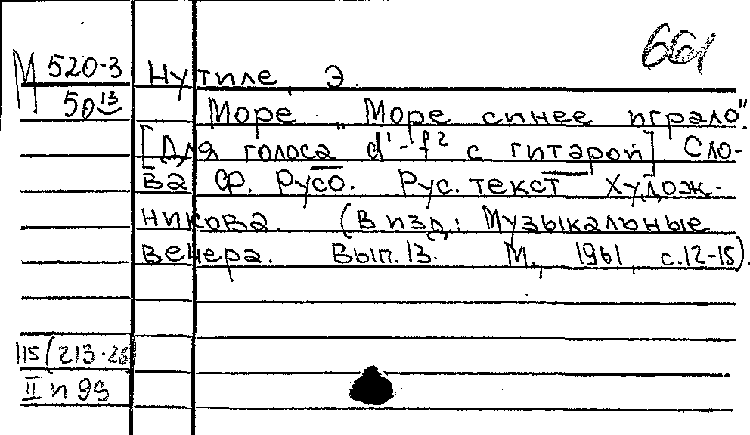 661
М 520-3
50 13
Нутиле, Э.
Море. „Море синее играло".
[Для голоса d¹-f² с гитарой] Сло-
ва Ф. Руссо. Рус. текст Худож-
никова. (В изд.: Музыкальные
вечера. Вып. 13. М., 1961, с. 12-15).
115/213-26
II п 99